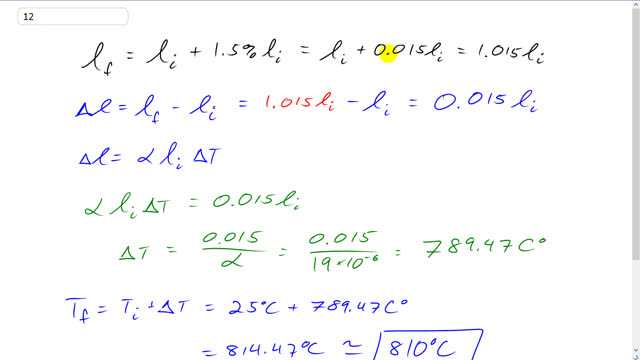 12
l_f = l_i + 1.5% l_i = l_i + 0.015 l_i = 1.015 l_i
Δl = l_f - l_i = 1.015 l_i - l_i = 0.015 l_i
Δl = α l_i ΔT
α l_i ΔT = 0.015 l_i
ΔT = 0.015/α = 0.015/19×10⁻⁶ = 789.47 C°
T_f = T_i + ΔT = 25°C + 789.47 C°
= 814.47°C ≃ 810°C